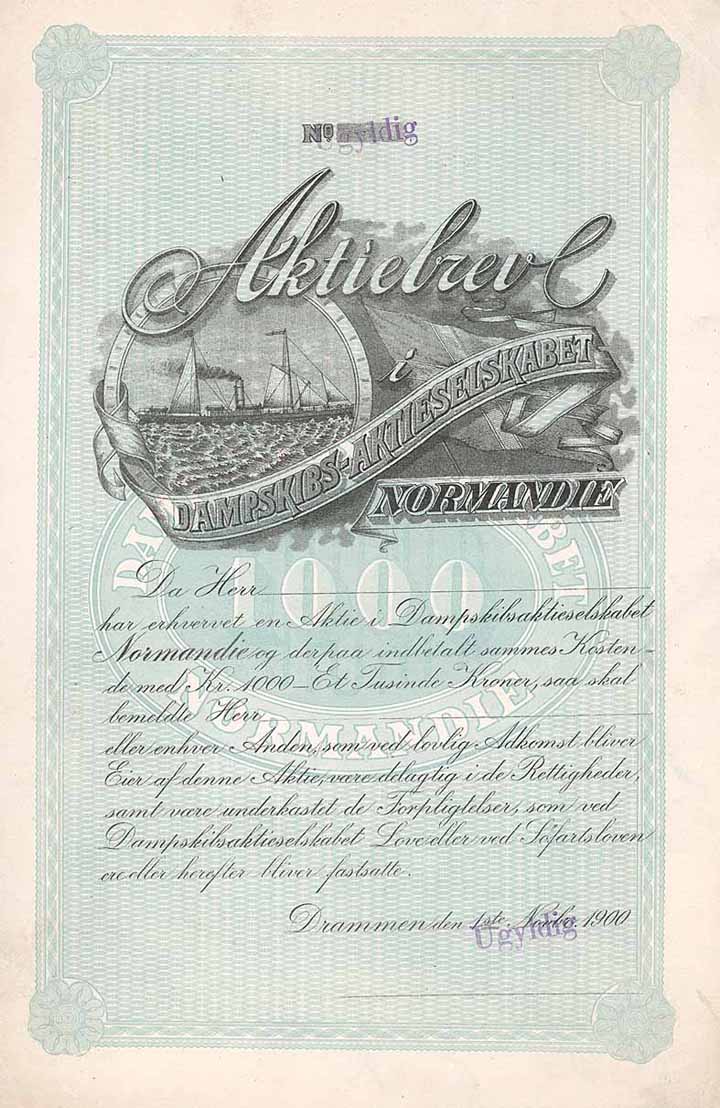 Nº Ugyldig
Aktiebrev
i
DAMPSKIBS-AKTIESELSKABET
NORMANDIE
1000
Da Herr
har erhvervet en Aktie i Dampskibsaktieselskabet
Normandie og derpaa indbetalt sammes Kosten-
de med Kr. 1000 – Et Tusinde Kroner, saa skal
bemeldte Herr
NORMANDIE
eller enhver Anden, som ved lovlig Adkomst bliver
Eier af denne Aktie, være delagtig i de Rettigheder,
samt være underkastet de Forpligtelser, som ved
Dampskibsaktieselskabet Love eller ved Söfartsloven
ere eller herefter bliver fastsatte.
Drammen den 1ste. Novbr. 1900
Ugyldig